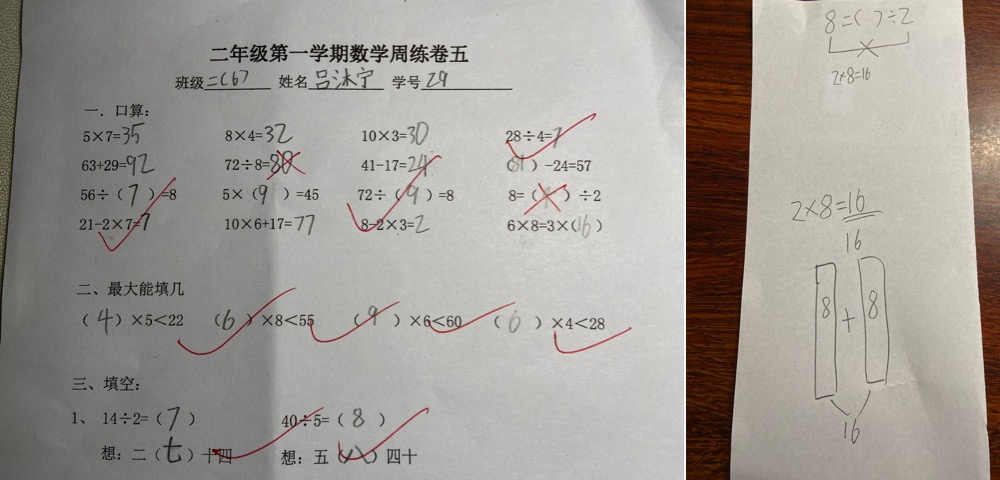 二年级第一学期数学周练卷五
班级二(6) 姓名吕沐宁 学号29
一. 口算:
5×7=35 8×4=32 10×3=30 28÷4=7
63+29=92 72÷8=80 41-17=24 (81)-24=57
56÷(7)=8 5×(9)=45 72÷(9)=8 8=( )÷2
21-2×7=7 10×6+17=77 8-2×3=2 6×8=3×(16)
二、最大能填几
(4)×5<22 (6)×8<55 (9)×6<60 (6)×4<28
三、填空:
1、 14÷2=(7) 40÷5=(8)
想: 二(七)十四 想: 五(八)四十
8=( )÷2
2×8=16
2×8=16
16
8 + 8
16